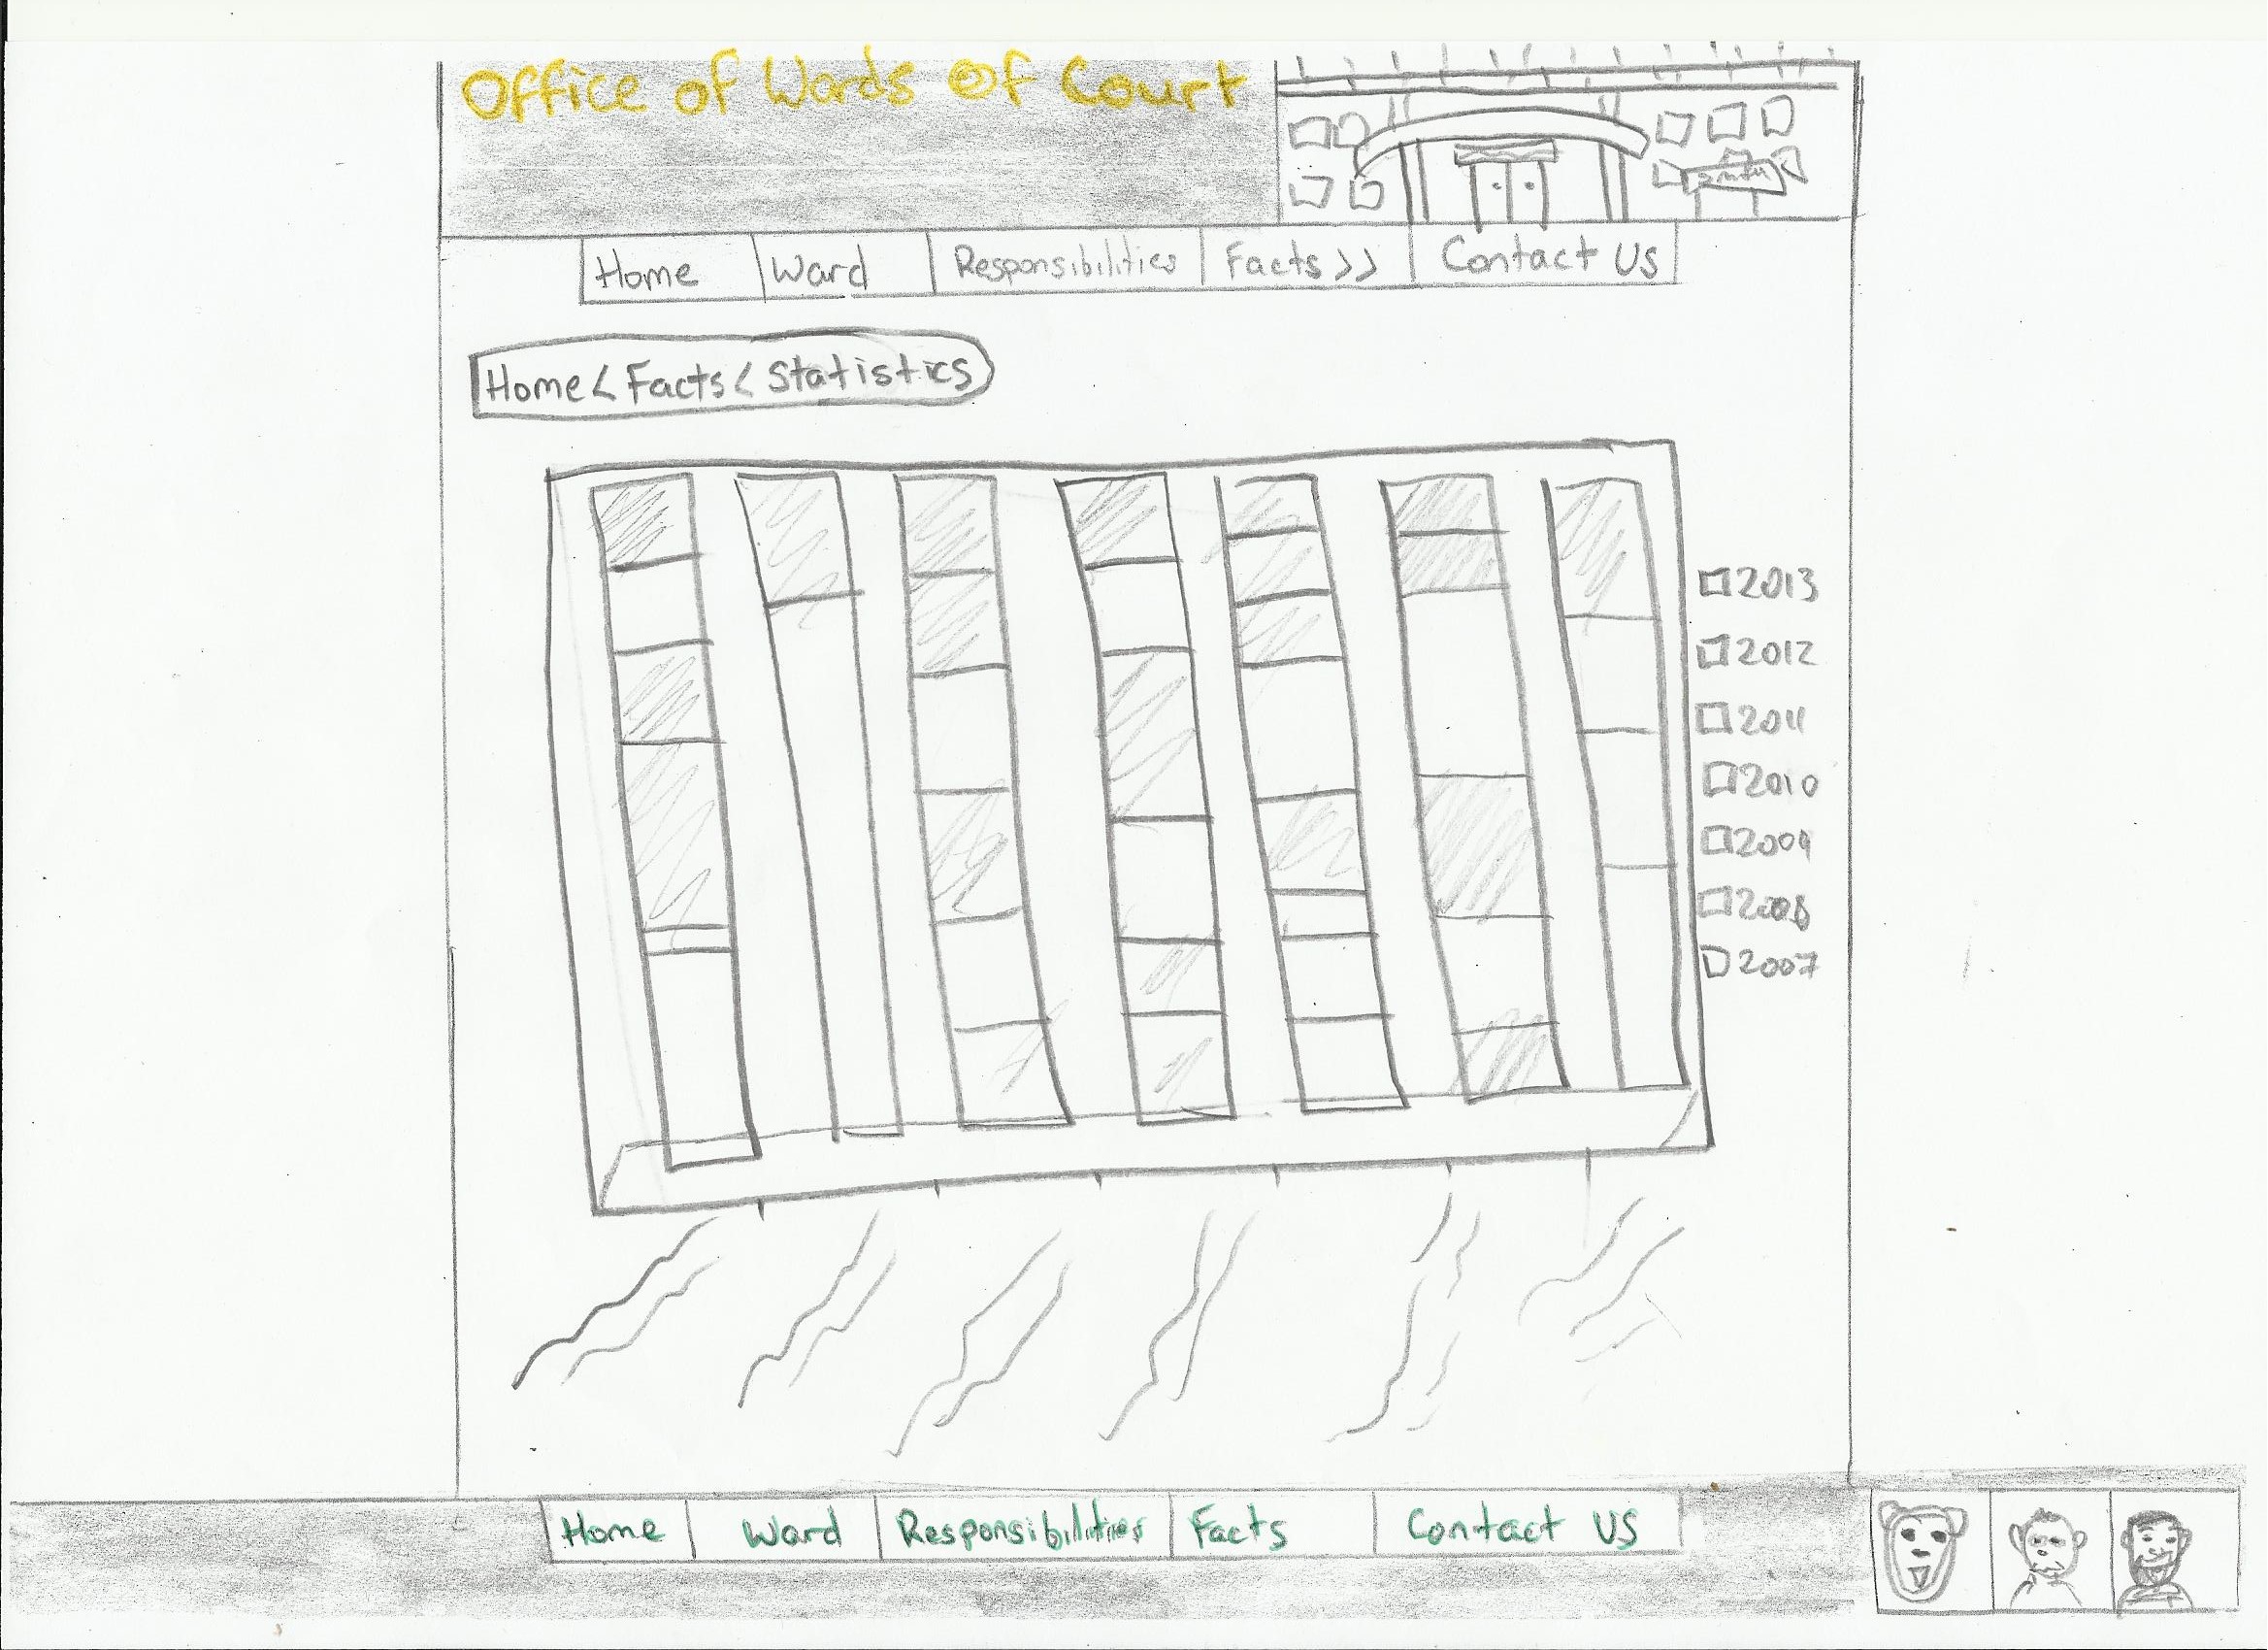 Office of Wards Of Court
Home Ward Responsibilities Facts >> Contact Us
Home < Facts < Statistics
2013
2012
2011
2010
2009
2008
2007
Home Ward Responsibilities Facts Contact US